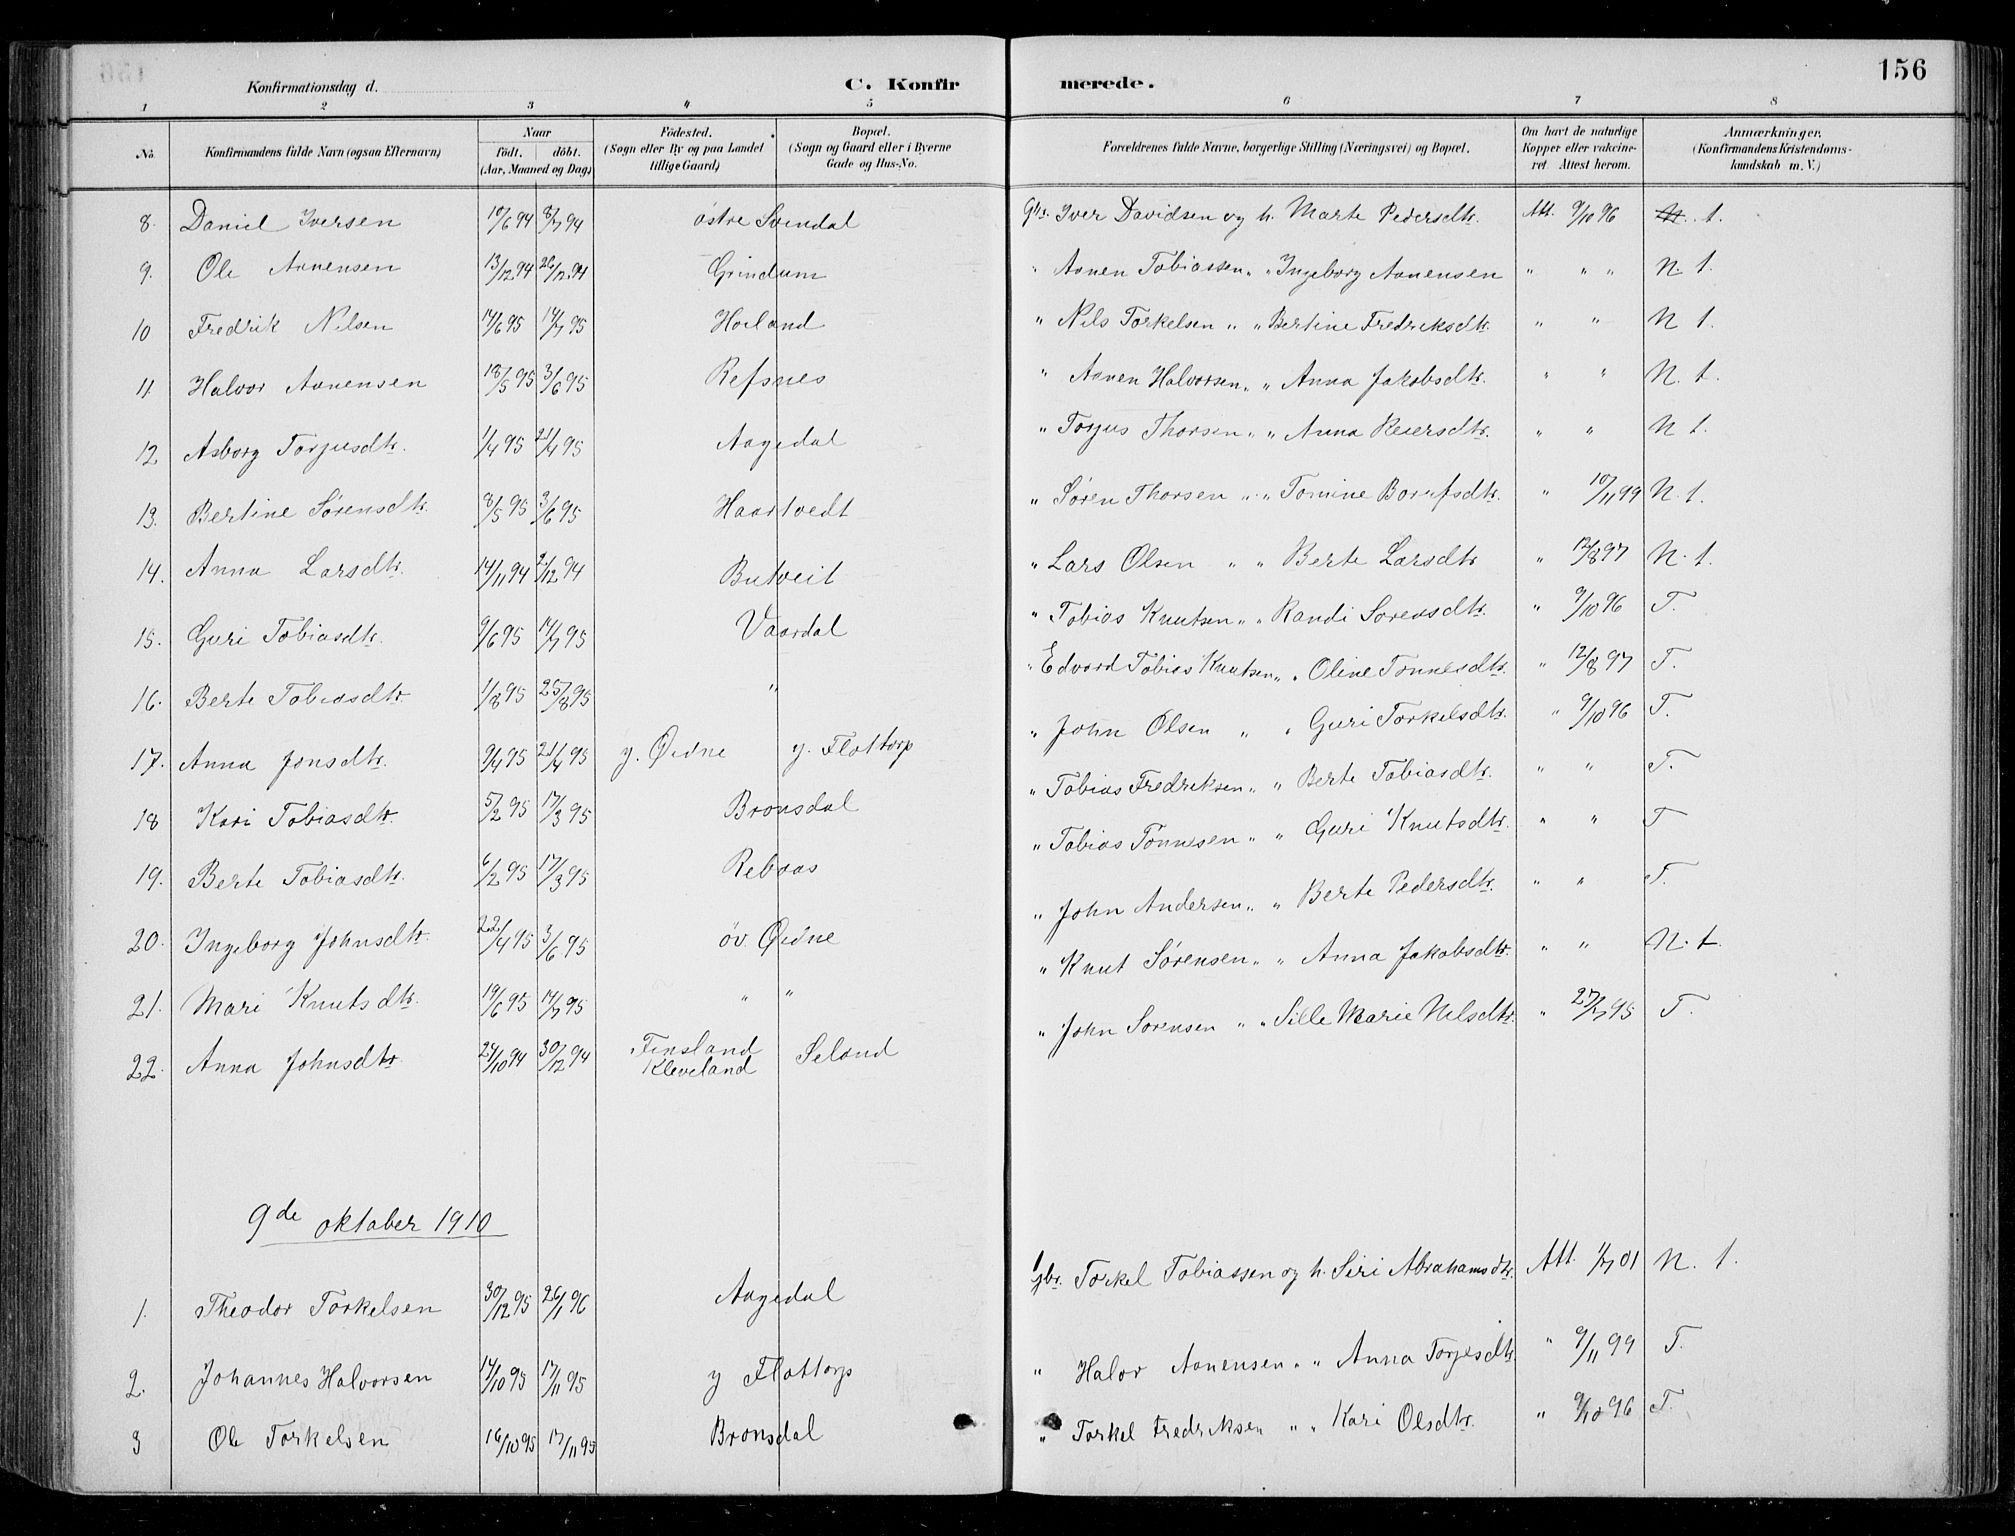 156
Konfirmationsdag d. C. Konfir merede.
1 2 3 4 5 6 7 8
No. Konfirmandens fulde Navn (ogsaa Efternavn) Naar födt. döbt. (Aar, Maaned og Dag) Födested. (Sogn eller By og paa Landet tillige Gaard) Bopæl. (Sogn og Gaard eller i Byerne Gade og Hus-No. Forældrenes fulde Navne, borgerlige Stilling (Næringsvei) og Bopæl. Om havt de naturlige Kopper eller vakcineret. Attest herom. Anmærkninger. (Konfirmandens Kristendomskundskab m. V.)
8. Daniel Iversen 10/6 94 8/7 94 östre Svendal Gbr. Iver Davidsen og h. Marte Pedersdtr. Att. 9/10 96 t.
9. Ole Aanensen 13/12 94 26/12 94 Grindum " Aanen Tobiassen " " Ingeborg Aanensen " " " N. t.
10 Fredrik Nilsen 14/6 95 14/7 95 Hoeland " Nils Torkelsen " " Bertine Fredriksdtr. " " N t.
11. Halvor Aanensen 18/5 95 3/6 95 Refsnes " Aanen Halvorsen " " Anna Jakobsdtr. " " N. t.
12 Asborg Torjusdtr. 1/4 95 21/4 95 Aagedal " Torjus Thorsen " " Anna Reiersdtr. " " N t.
13. Bertine Sørensdtr. 8/5 95 3/6 95 Haartvedt " Søren Thorsen " " Tomine Bornfsdtr. " 10/11 99 N. t.
14. Anna Larsdtr. 14/11 94 2/12 94 Butveit " Lars Olsen " " Berte Larsdtr " 12/8 97 N. t.
15. Guri Tobiasdtr. 9/6 95 14/7 95 Vaardal " Tobias Knutsen " " Randi Sorensdtr. " 9/10 96 T.
16. Berte Tobiasdtr. 1/8 95 25/8 95 " " Edvard Tobias Knutsen " " Oline Tønnesdtr. " 12/8 97 T.
17. Anna Jonsdtr. 9/4 95 21/4 95 y. Øidne y. Flottorp " John Olsen " " Guri Torkelsdtr. " 9/10 96 T.
18 Kari Tobiasdtr. 5/2 95 17/3 95 Bronsdal " Tobias Fredriksen " " Berte Tobiasdtr. " " T.
19. Berte Tobiasdtr. 6/2 95 17/3 95 Rebaas " Tobias Tönnesen " " Guri Knutsdtr. " " T
20. Ingeborg Johnsdtr. 22/4 95 3/6 95 öv. Øidne " John Andersen " " Berte Pedersdtr. " " T.
21. Mari Knutsdtr. 19/6 95 14/7 95 " " " Knut Sørensen " " Anna Jakobsdtr. " " N. t.
22. Anna Johnsdtr. 24/10 94 30/12 94 Finsland Kleveland Seland " John Sørensen " " Sille Marie Nilsdtr. " 27/7 95 T.
9de oktober 1910
1. Theodor Torkelsen 30/12 95 26/1 96 Aagedal Gbr. Torkel Tobiassen og h. Siri Abrahamsdtr. Att. 1/7 01 N. t.
2. Johannes Halvorsen 14/10 95 17/11 95 y Flottorp " Halvor Aanensen " " Anna Torjesdtr. " 9/11 99 T.
3 Ole Torkelsen 16/10 95 17/11 95 Bronsdal " Torkel Fredriksen " " Kari Olsdtr. " 9/10 96 T.